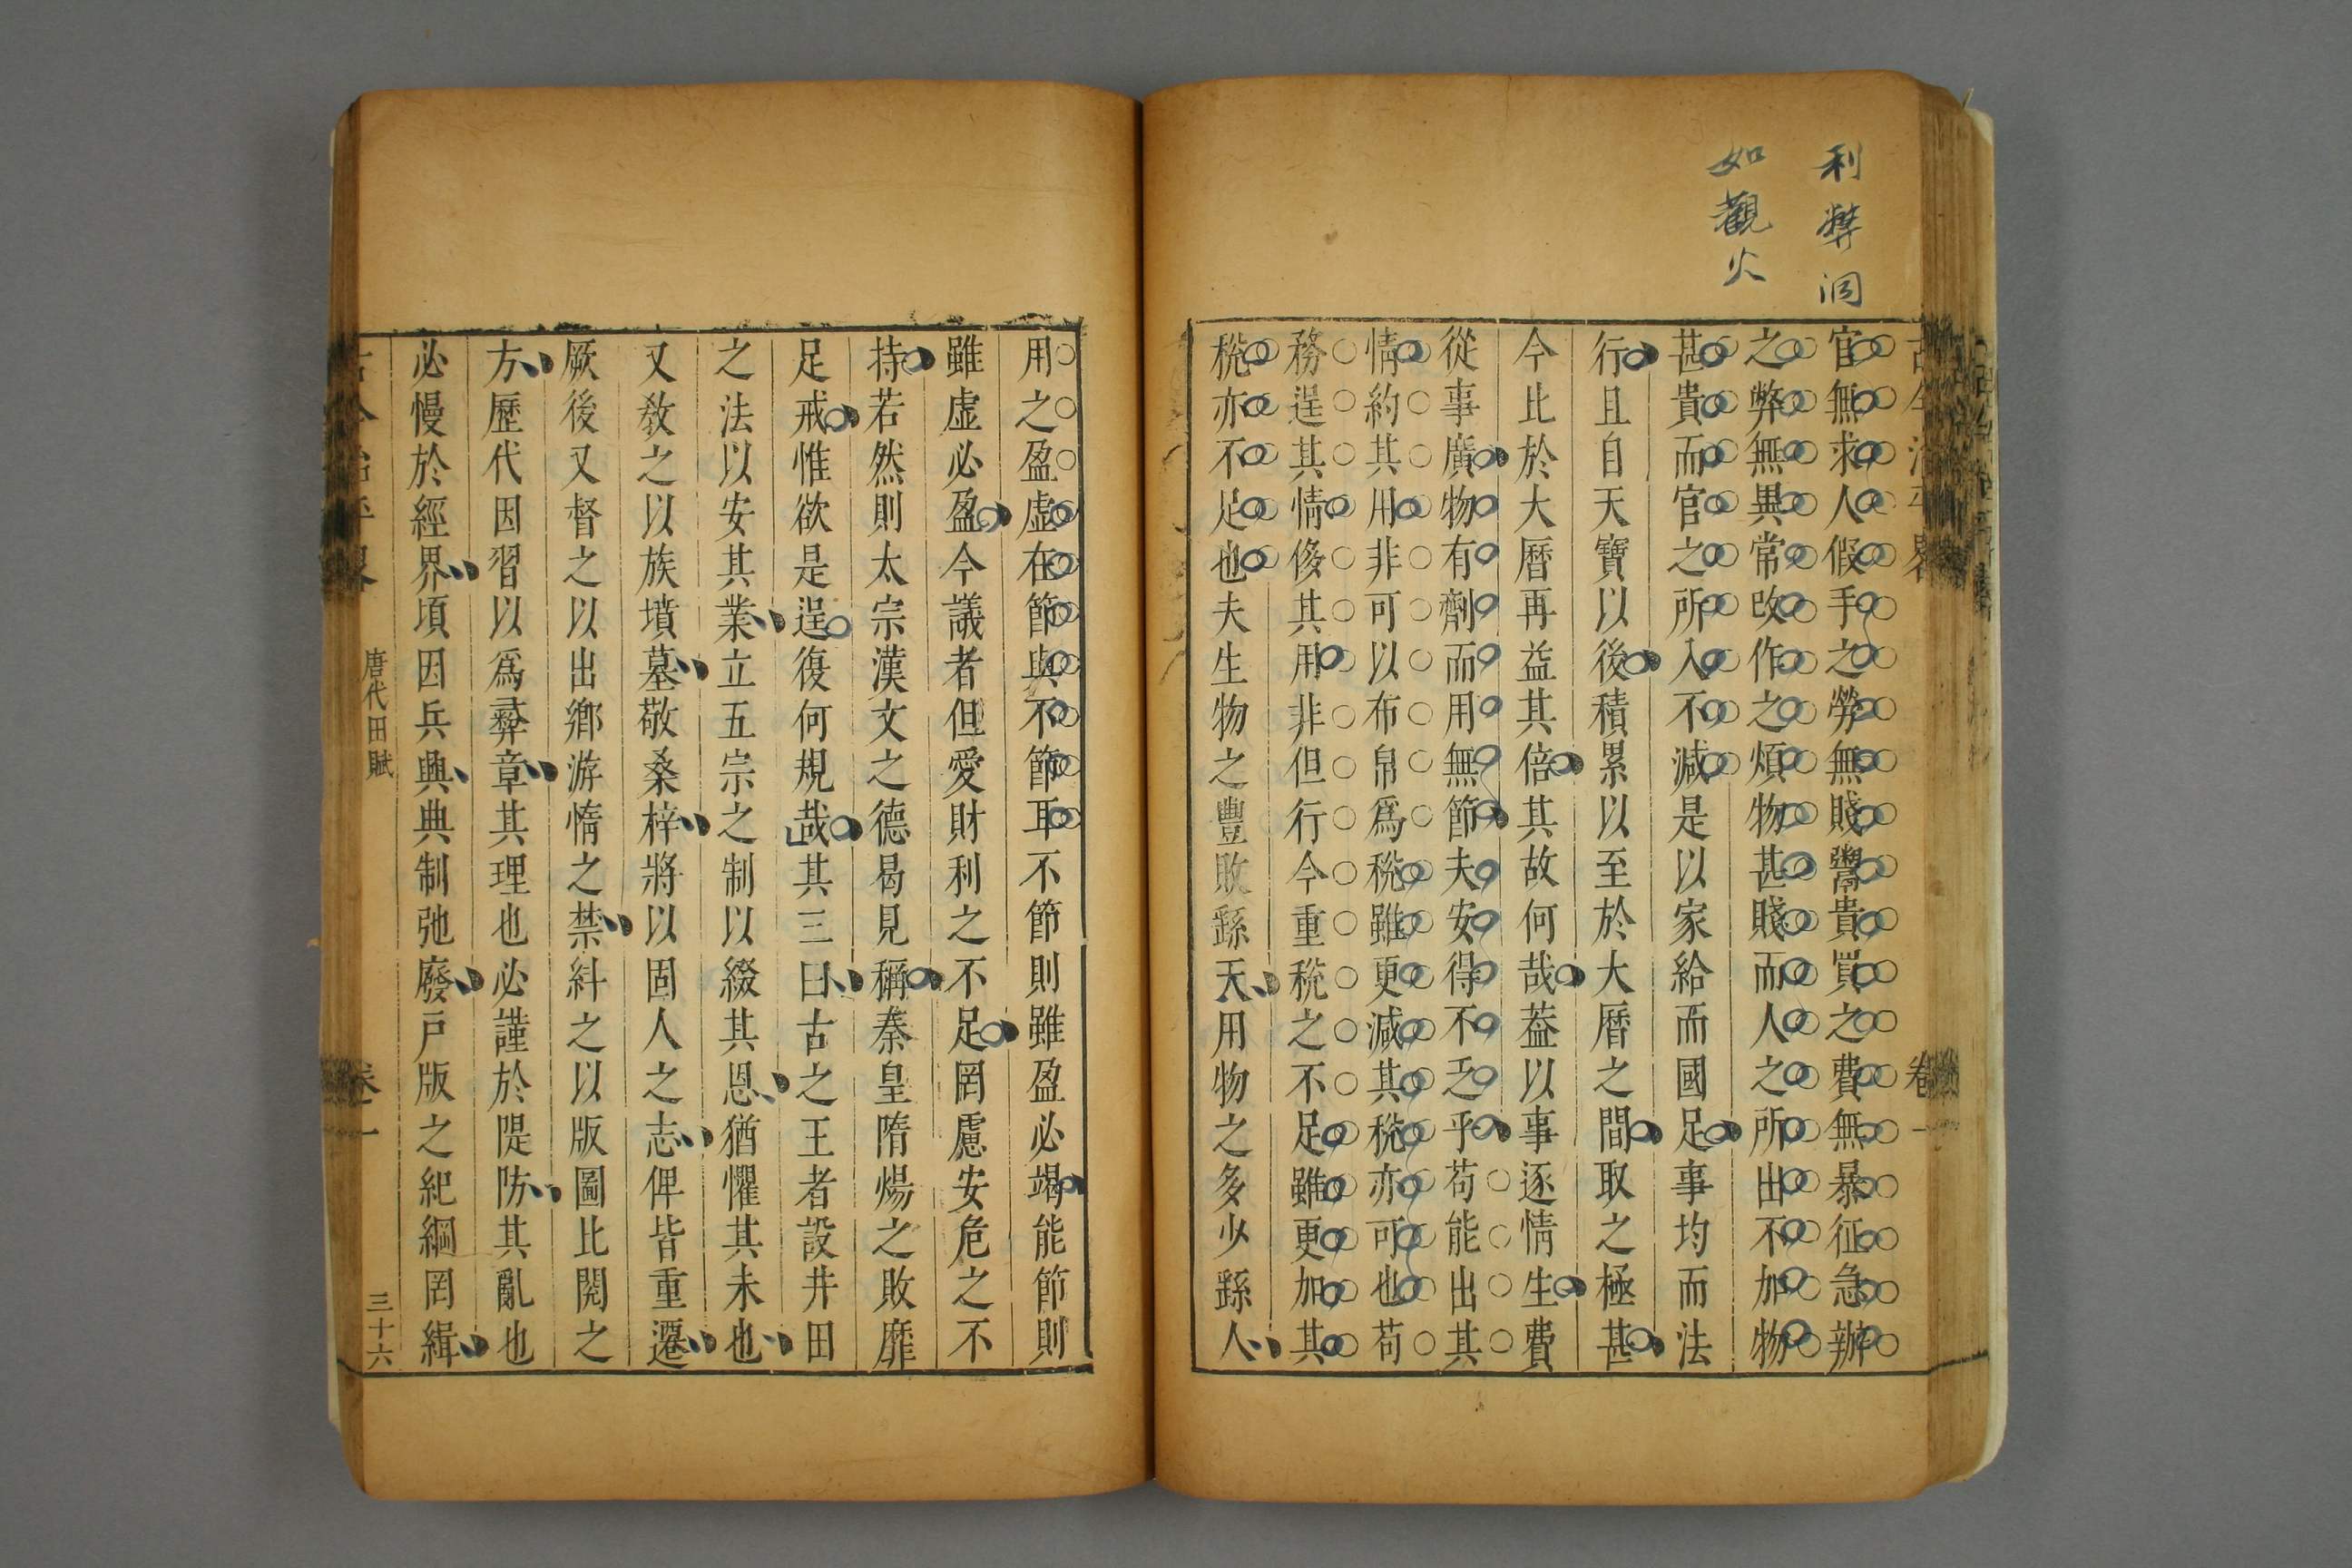 利弊洞
如觀火
官無求人假手之勞無賤鬻貴買之費無暴征急辦
之弊無異常改作之煩物甚賤而人之所出不加物
甚貴而官之所入不減是以家給而國足事均而法
行且自天寶以後積累以至於大曆之間取之極甚
今比於大曆再益其倍其故何哉葢以事逐情生費
從事廣物有劑而用無節夫安得不乏乎苟能出其
情約其用非可以布帛爲稅雖更減其稅亦可也苟
務逞其情侈其用非但行今重稅之不足雖更加其
稅亦不足也夫生物之豐敗繇天用物之多少繇人
用之盈虛在節與不節耳不節則雖盈必竭能節則
雖虛必盈今議者但愛財利之不足罔慮安危之不
持若然則太宗漢文之德曷見稱秦皇隋煬之敗靡
足戒惟欲是逞復何規哉其三曰古之王者設井田
之法以安其業立五宗之制以綴其恩猶懼其未也
又敎之以族墳墓敬桑梓將以固人之志俾皆重遷
厥後又督之以出鄉游惰之禁糾之以版圖比閱之
方歷代因習以爲彝章其理也必謹於隄防其亂也
必慢於經界頃因兵興典制弛廢戸版之紀綱罔緝
唐代田賦
卷一
三十六